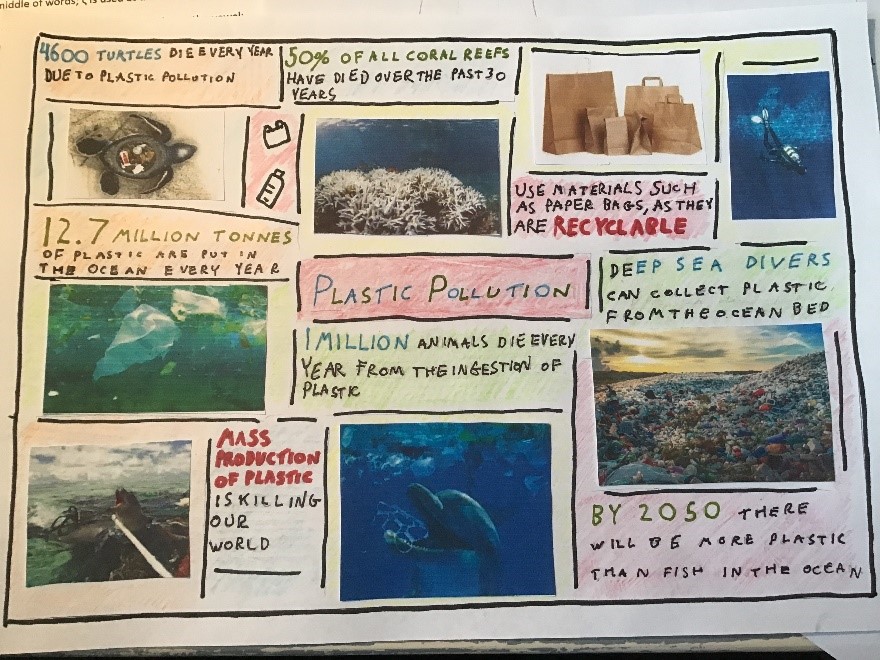 middle of words,
4600 TURTLES DIE EVERY YEAR
DUE TO PLASTIC POLLUTION
50% OF ALL CORAL REEFS
HAVE DIED OVER THE PAST 30
YEARS
USE MATERIALS SUCH
AS PAPER BAGS, AS THEY
ARE RECYCLABLE
12.7 MILLION TONNES
OF PLASTIC ARE PUT IN
THE OCEAN EVERY YEAR
PLASTIC POLLUTION
DEEP SEA DIVERS
CAN COLLECT PLASTIC
FROM THE OCEAN BED
1 MILLION ANIMALS DIE EVERY
YEAR FROM THE INGESTION OF
PLASTIC
MASS
PRODUCTION
OF PLASTIC
IS KILLING
OUR
WORLD
BY 2050 THERE
WILL BE MORE PLASTIC
THAN FISH IN THE OCEAN